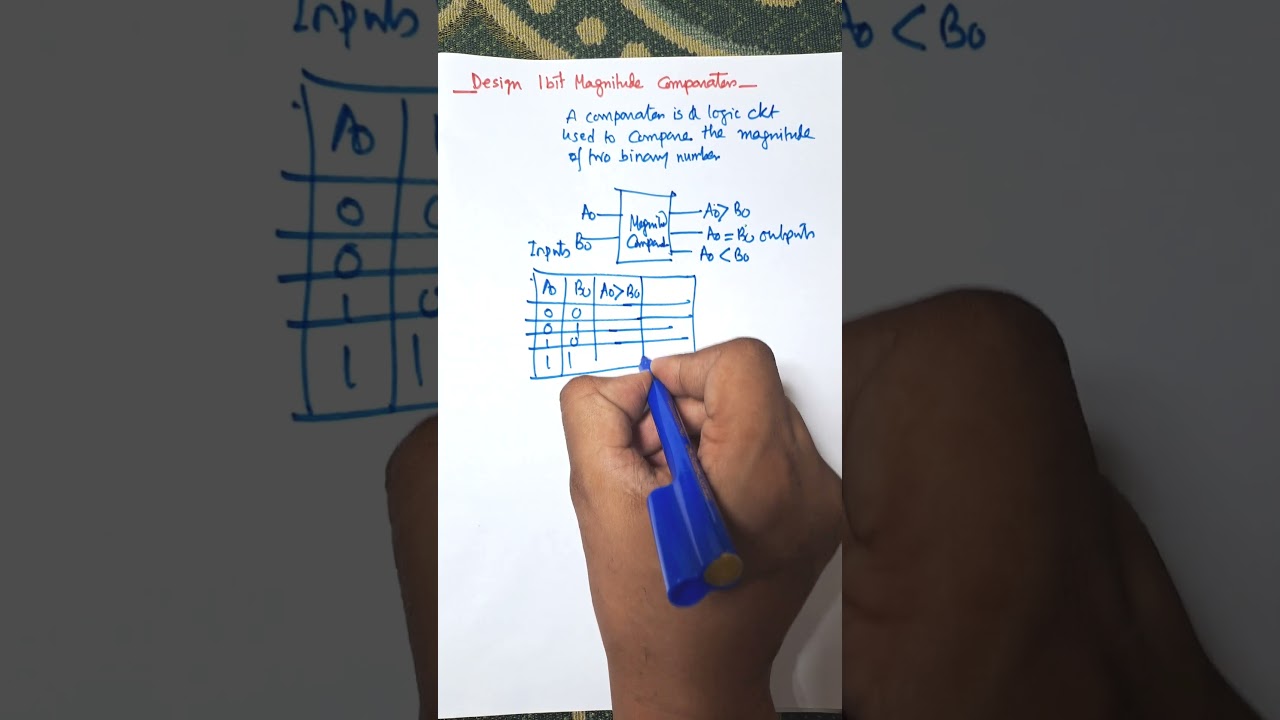 Design 1bit Magnitude Comparators
A comparator is a logic ckt
used to compare the magnitude
of two binary number
A0 A0 > B0
B0 A0 = B0 outputs
Magnitud
Compara
Inputs A0 < B0
A0 B0 A0 > B0
0 0
0 1
1 0
1 1
Inputs
A0
0
0
1 0
1 1
A0 < B0